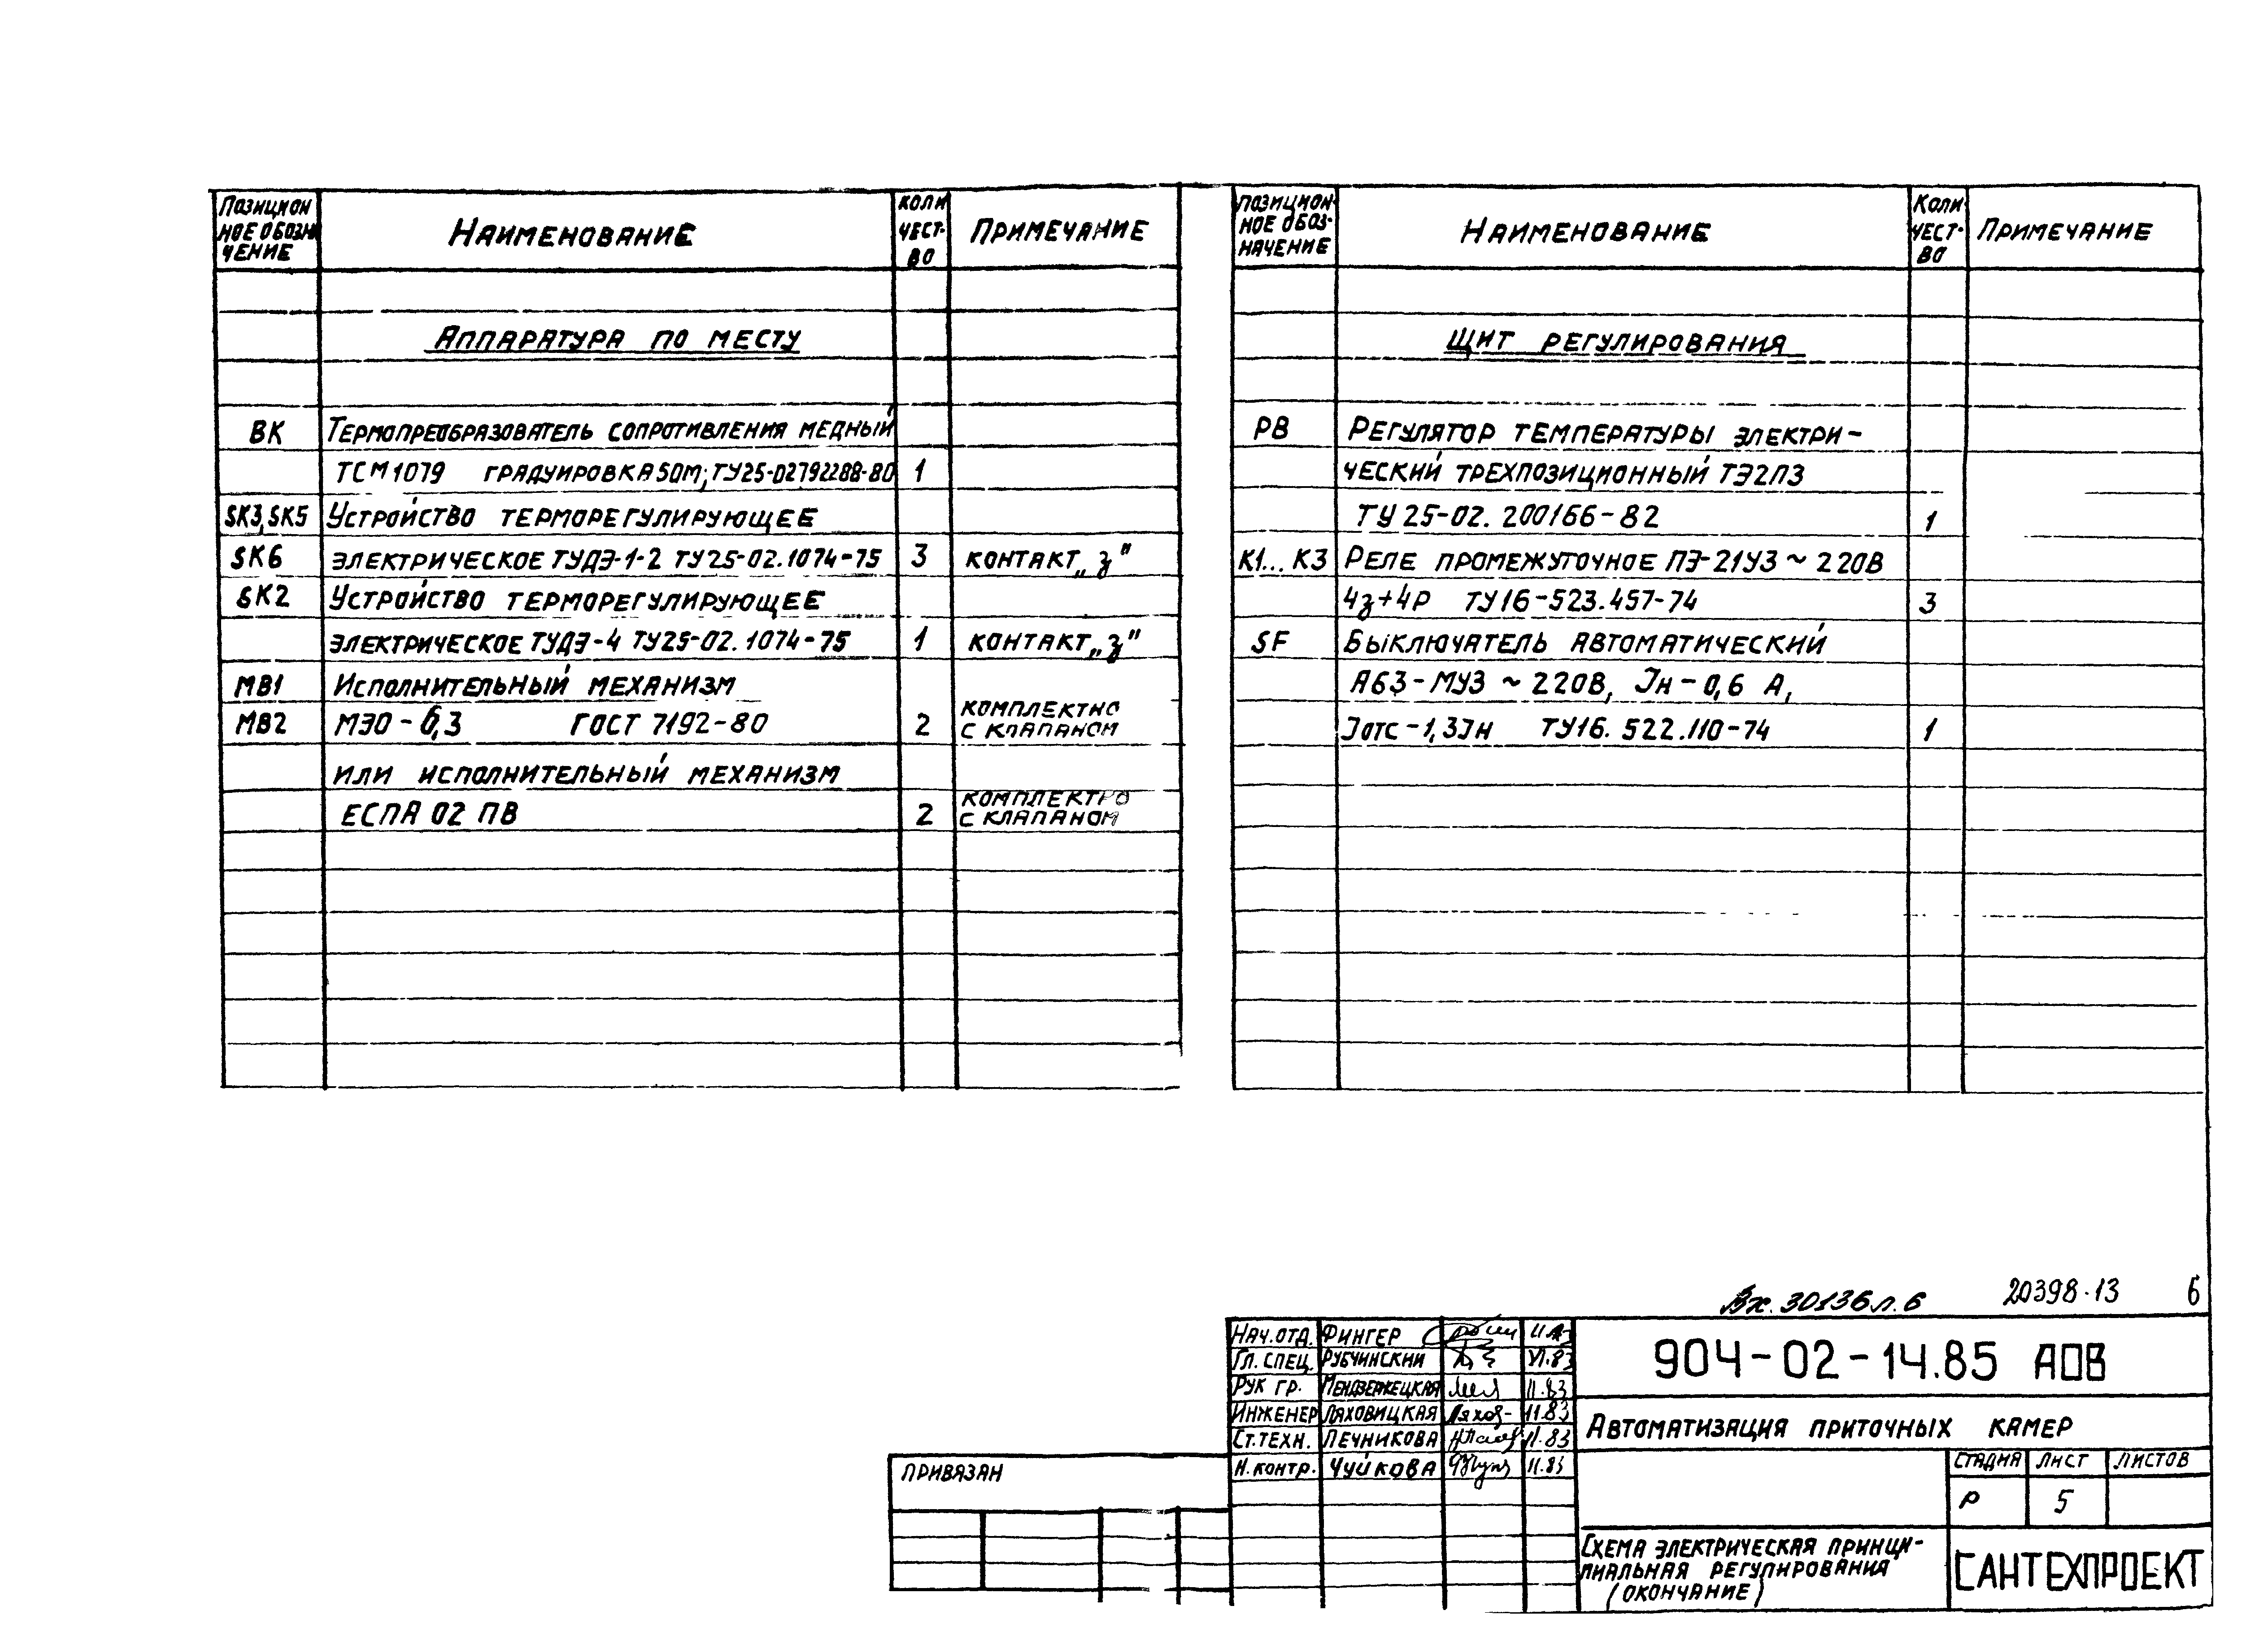 Позицион
ное обозн
чение
Наименование
Коли
чест-
во
Примечание
Аппаратура по месту
ВК Термопреобразователь сопротивления медный
ТСМ1079 градуировка 50М; ТУ25-02792288-80 1
SK3, SK5 Устройство терморегулирующее
SK6 электрическое ТУДЭ-1-2 ТУ25-02.1074-75 3 контакт „з"
SK2 Устройство терморегулирующее
электрическое ТУДЭ-4 ТУ25-02.1074-75 1 контакт „з"
МВ1 Исполнительный механизм
МВ2 МЭО-6,3 ГОСТ 7192-80 2 комплектно
с клапаном
или исполнительный механизм
ЕСПА 02 ПВ 2 комплектно
с клапаном
Позицион-
ное обоз-
начение
Наименование
Коли-
чест-
во
Примечание
Щит регулирования
РВ Регулятор температуры электри-
ческий трехпозиционный ТЭ2П3
ТУ 25-02.200166-82 1
К1...К3 Реле промежуточное ПЭ-21У3 ~ 220В
4з+4р ТУ16-523.457-74 3
SF Выключатель автоматический
А63-МУ3 ~ 220В, Iн-0,6 А,
Iотс-1,3Iн ТУ16.522.110-74 1
Вх. 30136 л. 6 20398-13 6
Нач.отд. Фингер
Гл. спец. Рубчинский VI.83
Рук гр. Мендзержецкая 11.83
Инженер Ляховицкая 11.83
Ст.техн. Печникова 11.83
Н. контр. Чуйкова 11.83
904-02-14.85 АОВ
Автоматизация приточных камер
Стадия Лист Листов
Р 5
Схема электрическая принци-
пиальная регулирования
(окончание)
САНТЕХПРОЕКТ
Привязан